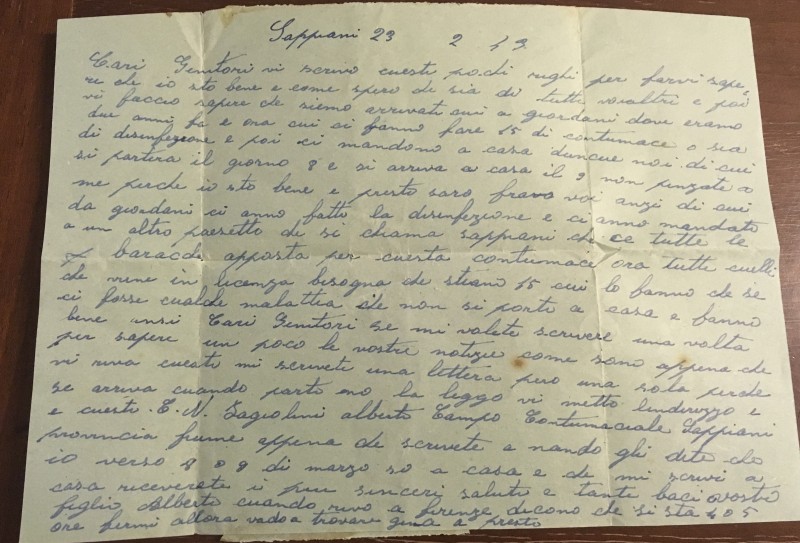 Sappiani 23 2 43
Cari Genitori vi scrivo cuesti po.di rughi per farvi sape
re che io sto bene e come spero de sia di tutti voialtri e poi
vi faccio sapere de siemo arrivati cui a giordani dove eramo
due anni fa e ora cui ci fanno fare 15 di contumace o sia
di desenfezione e poi ci mandono a casa duncue noi di cui
si partera il giorno 8 e si arriva a casa il 9 non penzate a
me perche io sto bene e presto saro fra voi anzi di cui
da giordani ci anno fatto la desenfezione e ci anno mandato
a un altro paesetto de si chiama sappiani che ce tutte le
baracche apposta per cuesta contumace ora tutti cuelli
che viene in licenza bisogna de stiano 15 cui lo fanno de se
ci fosse cualche malattia de non si porti a casa e fanno
bene ansi Cari Genitori se mi volete scrivere una volta
per sapere un poco le vostre notizie come sono appena che
vi riva cuesta mi scrivete una lettera pero una sola perche
se arriva cuando parto no la leggo vi metto lindirizzo e
e cuesto. C. N. Gagiolini alberto Campo Contumaciale Sappiani
provincia fiume appena de scrivete a nando gli dite che
io verso 8 o 9 di marzo so a casa e de mi scrivi a
casa riceverete i piu sinceri saluti e tanti baci vostro
figlio Alberto cuando rivo a firenze dicono che si sta 4 o 5
ore fermi allora vado a trovare gina a presto